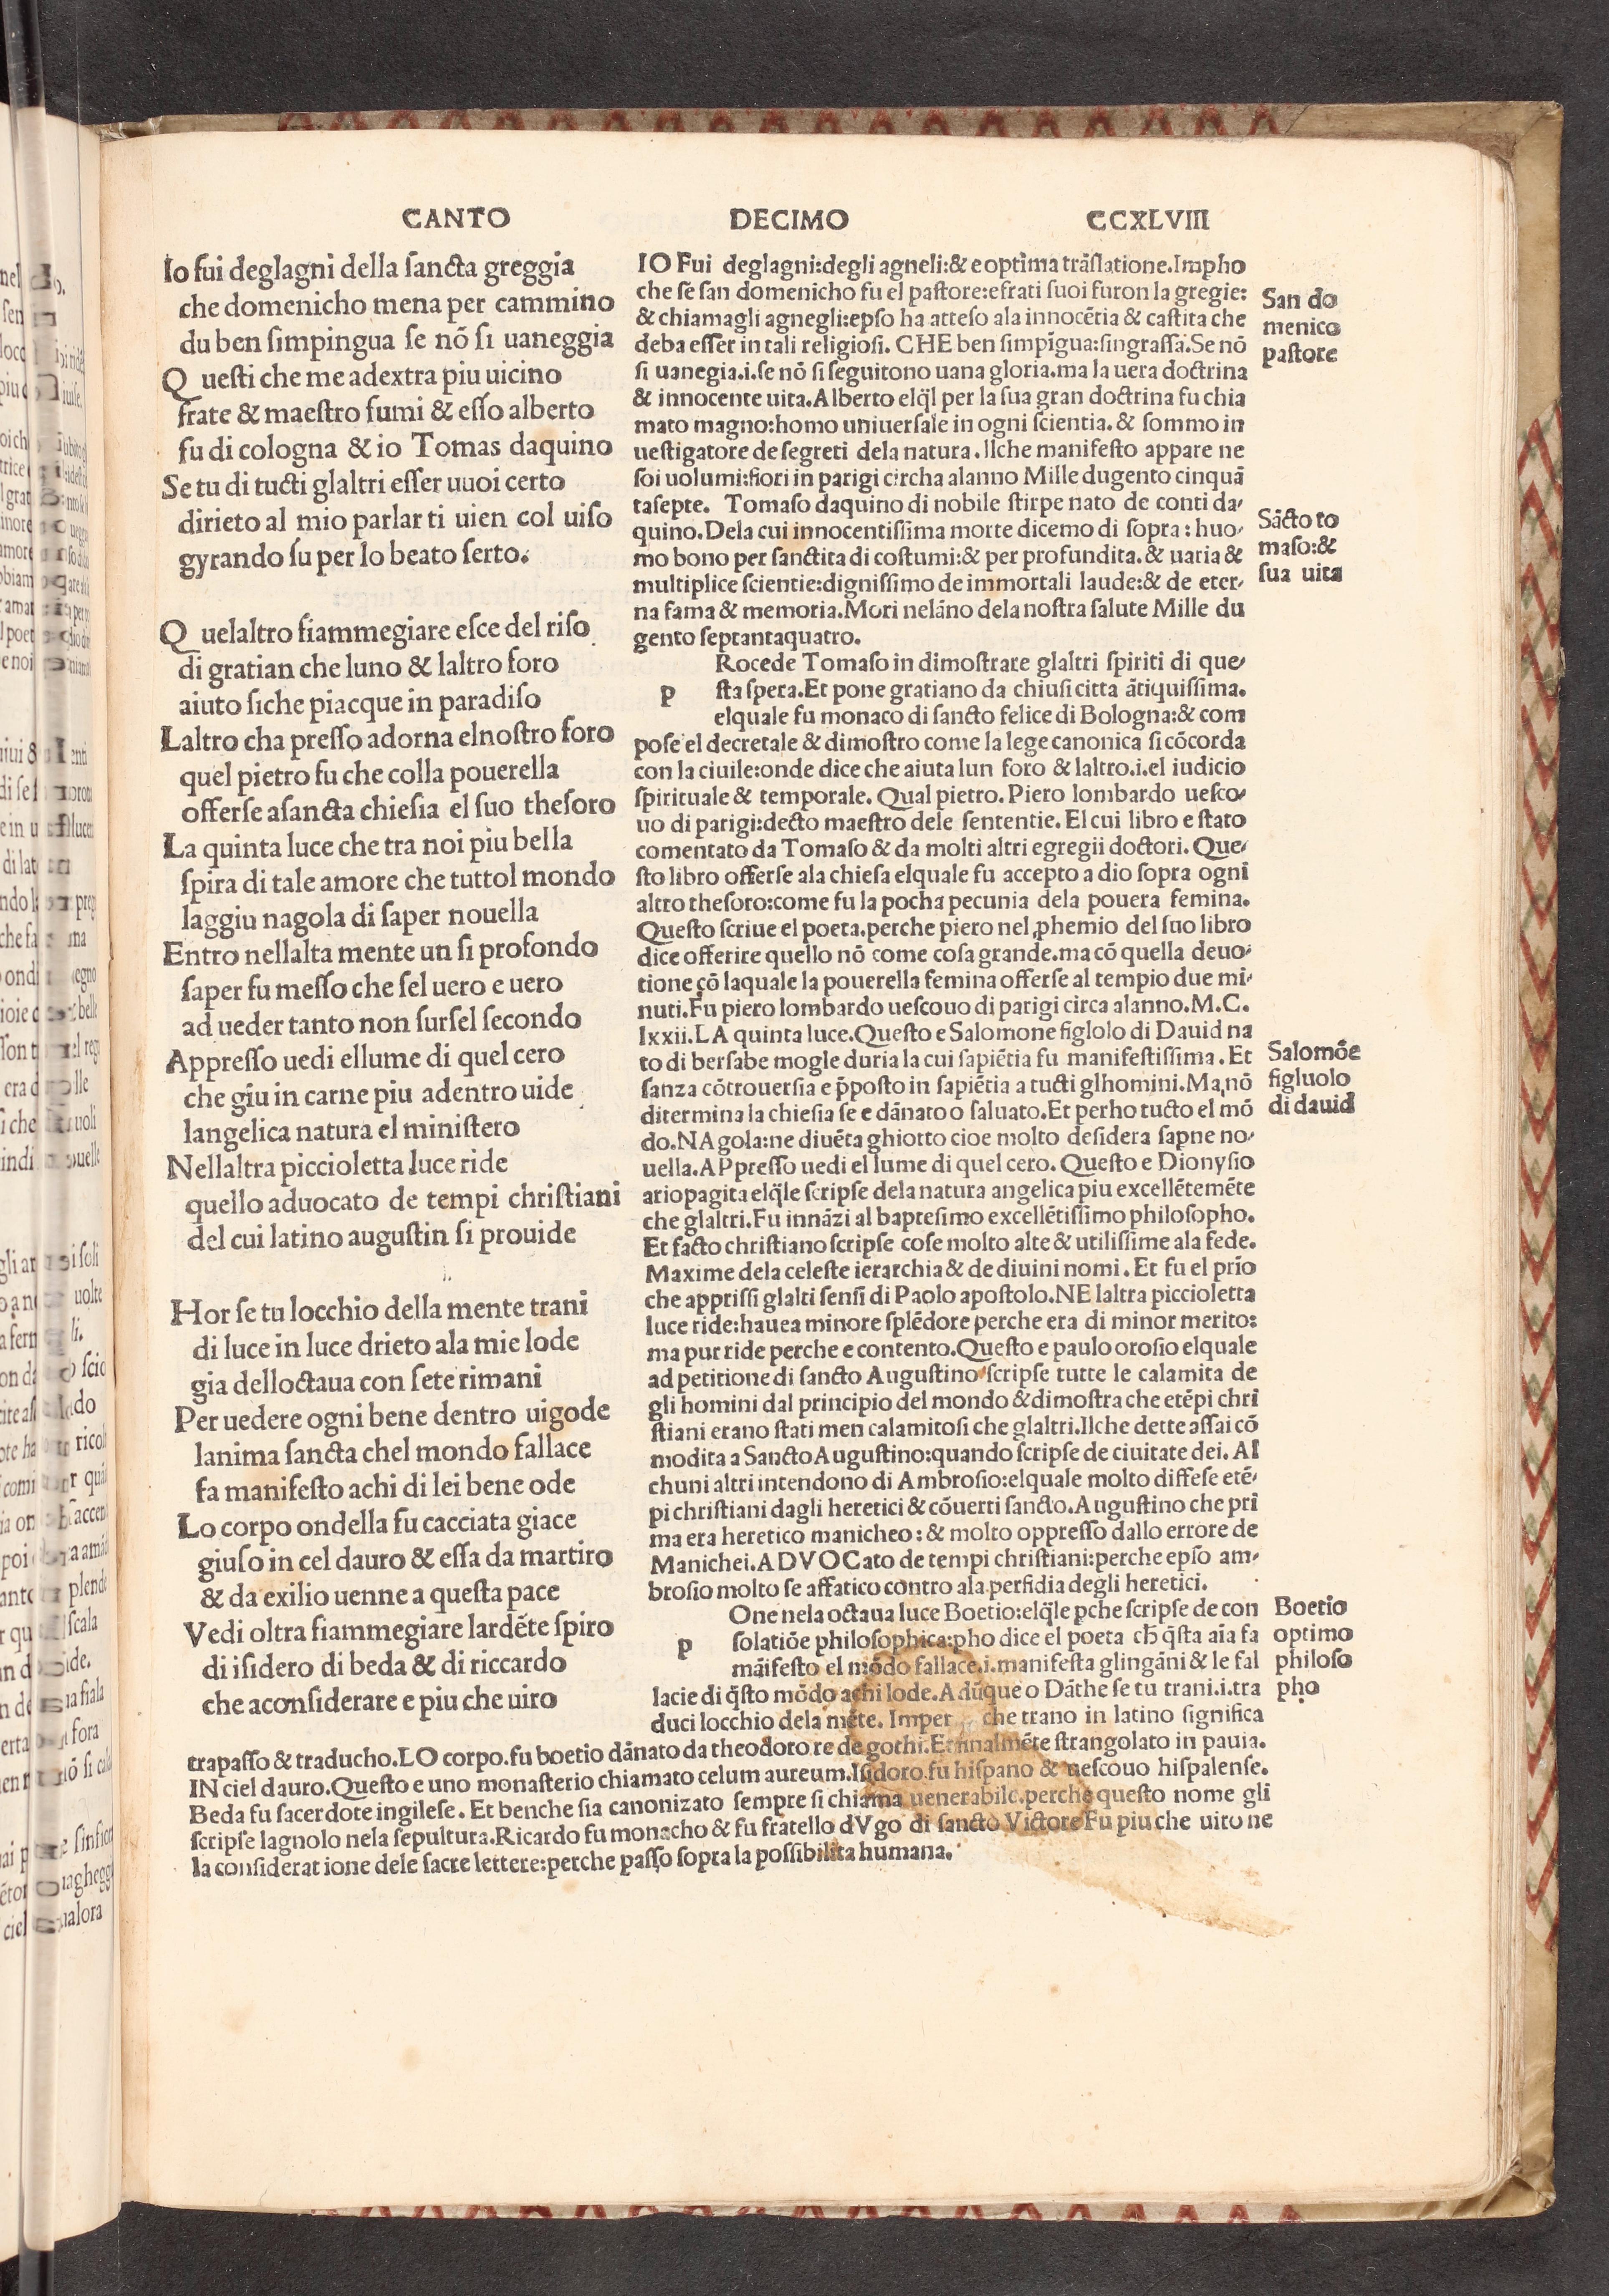 CANTO DECIMO CCXLVIII
Io fui deglagni della sancta greggia
che domenicho mena per cammino
du ben simpingua se nō si uaneggia
Q uesti che me adextra piu uicino
frate & maestro fumi & esso alberto
fu di cologna & io Tomas daquino
Se tu di tucti glaltri esser uuoi certo
dirieto al mio parlar ti uien col uiso
gyrando su per lo beato serto.
Q uelaltro fiammegiare esce del riso
di gratian che luno & laltro foro
aiuto siche piacque in paradiso
Laltro cha presso adorna elnostro foro
quel pietro fu che colla pouerella
offerse asancta chiesia el suo thesoro
La quinta luce che tra noi piu bella
spira di tale amore che tuttol mondo
laggiu nagola di saper nouella
Entro nellalta mente un si profondo
saper fu messo che sel uero e uero
ad ueder tanto non sursel secondo
Appresso uedi ellume di quel cero
che giu in carne piu adentro uide
langelica natura el ministero
Nellaltra piccioletta luce ride
quello aduocato de tempi christiani
del cui latino augustin si prouide
Hor se tu locchio della mente trani
di luce in luce drieto ala mie lode
gia delloctaua con sete rimani
Per uedere ogni bene dentro uigode
lanima sancta chel mondo fallace
fa manifesto achi di lei bene ode
Lo corpo ondella fu cacciata giace
giuso in cel dauro & essa da martiro
& da exilio uenne a questa pace
Vedi oltra fiammegiare lardēte spiro
di isidero di beda & di riccardo
che aconsiderare e piu che uiro
IO Fui deglagni:degli agneli:& e optima trāslatione.Impho
che se san domenicho fu el pastore:e frati suoi furon la gregie:
& chiamagli agnegli:epso ha atteso ala innocētia & castita che
deba esser in tali religiosi. CHE ben simpīgua:singrassa.Se nō
si uanegia.i.se nō si seguitono uana gloria.ma la uera doctrina
& innocente uita.Alberto elql̄ per la sua gran doctrina fu chia
mato magno:homo uniuersale in ogni scientia.& sommo in
uestigatore de segreti dela natura.Ilche manifesto appare ne
soi uolumi:fiori in parigi circha alanno Mille dugento cinquā
tasepte. Tomaso daquino di nobile stirpe nato de conti da-
quino.Dela cui innocentissima morte dicemo di sopra : huo-
mo bono per sanctita di costumi:& per profundita.& uaria &
multiplice scientie:dignissimo de immortali laude:& de eter-
na fama & memoria.Mori nelāno dela nostra salute Mille du
gento septantaquatro.
Rocede Tomaso in dimostrare glaltri spiriti di que-
p sta spera.Et pone gratiano da chiusi citta ātiquissima.
elquale fu monaco di sancto felice di Bologna:& com
pose el decretale & dimostro come la lege canonica si cōcorda
con la ciuile:onde dice che aiuta lun foro & laltro.i.el iudicio
spirituale & temporale. Qual pietro. Piero lombardo uesco-
uo di parigi:decto maestro dele sententie. El cui libro e stato
comentato da Tomaso & da molti altri egregii doctori. Que-
sto libro offerse ala chiesa elquale fu accepto a dio sopra ogni
altro thesoro:come fu la pocha pecunia dela pouera femina.
Questo scriue el poeta.perche piero nel ꝓhemio del suo libro
dice offerire quello nō come cosa grande.ma cō quella deuo-
tione cō laquale la pouerella femina offerse al tempio due mi-
nuti.Fu piero lombardo uescouo di parigi circa alanno.M.C.
lxxii.LA quinta luce.Questo e Salomone figlolo di Dauid na
to di bersabe mogle duria la cui sapiētia fu manifestissima. Et
sanza cōtrouersia e p̄posto in sapiētia a tucti glhomini.Ma nō
ditermina la chiesia se e dānato o saluato.Et perho tucto el mō
do.NAgola:ne diuēta ghiotto cioe molto desidera sapne no-
uella.APpresso uedi el lume di quel cero. Questo e Dionysio
ariopagita elql̄e scripse dela natura angelica piu excellētemēte
che glaltri.Fu innāzi al baptesimo excellētissimo philosopho.
Et facto christiano scripse cose molto alte & utilissime ala fede.
Maxime dela celeste ierarchia & de diuini nomi. Et fu el prīo
che apprissi glalti sensi di Paolo apostolo.NE laltra piccioletta
luce ride:hauea minore splēdore perche era di minor merito:
ma pur ride perche e contento.Questo e paulo orosio elquale
ad petitione di sancto Augustino scripse tutte le calamita de
gli homini dal principio del mondo & dimostra che etēpi chri
stiani erano stati men calamitosi che glaltri.Ilche dette assai cō
modita a Sancto Augustino:quando scripse de ciuitate dei. Al
chuni altri intendono di Ambrosio:elquale molto diffese etē-
pi christiani dagli heretici & cōuerti sancto.Augustino che pri
ma era heretico manicheo: & molto oppresso dallo errore de
Manichei.ADVOCato de tempi christiani:perche epso am-
brosio molto se affatico contro ala perfidia degli heretici.
One nela octaua luce Boetio:elql̄e pche scripse de con
p solatiōe philosophica:pho dice el poeta ch̄ q̄sta aīa fa
māifesto el mōdo fallace.i.manifesta glingāni & le fal
lacie di q̄sto mōdo achi lode.Adūque o Dāthe se tu trani.i.tra
duci locchio dela mēte. Imper che trano in latino significa
trapasso & traducho.LO corpo.fu boetio dānato da theodoro re de gothi.Et finalmēte strangolato in pauia.
IN ciel dauro.Questo e uno monasterio chiamato celum aureum.Isidoro fu hispano & uescouo hispalense.
Beda fu sacerdote ingilese. Et benche sia canonizato sempre si chiama uenerabile.perche questo nome gli
scripse lagnolo nela sepultura.Ricardo fu monacho & fu fratello dVgo di sancto Victore Fu piu che uiro ne
la considerat ione dele sacre lettere:perche passo sopra la possibilita humana.
San do
menico
pastore
Sācto to
maso:&
sua uita
Salomōe
figluolo
di dauid
Boetio
optimo
philoso
pho